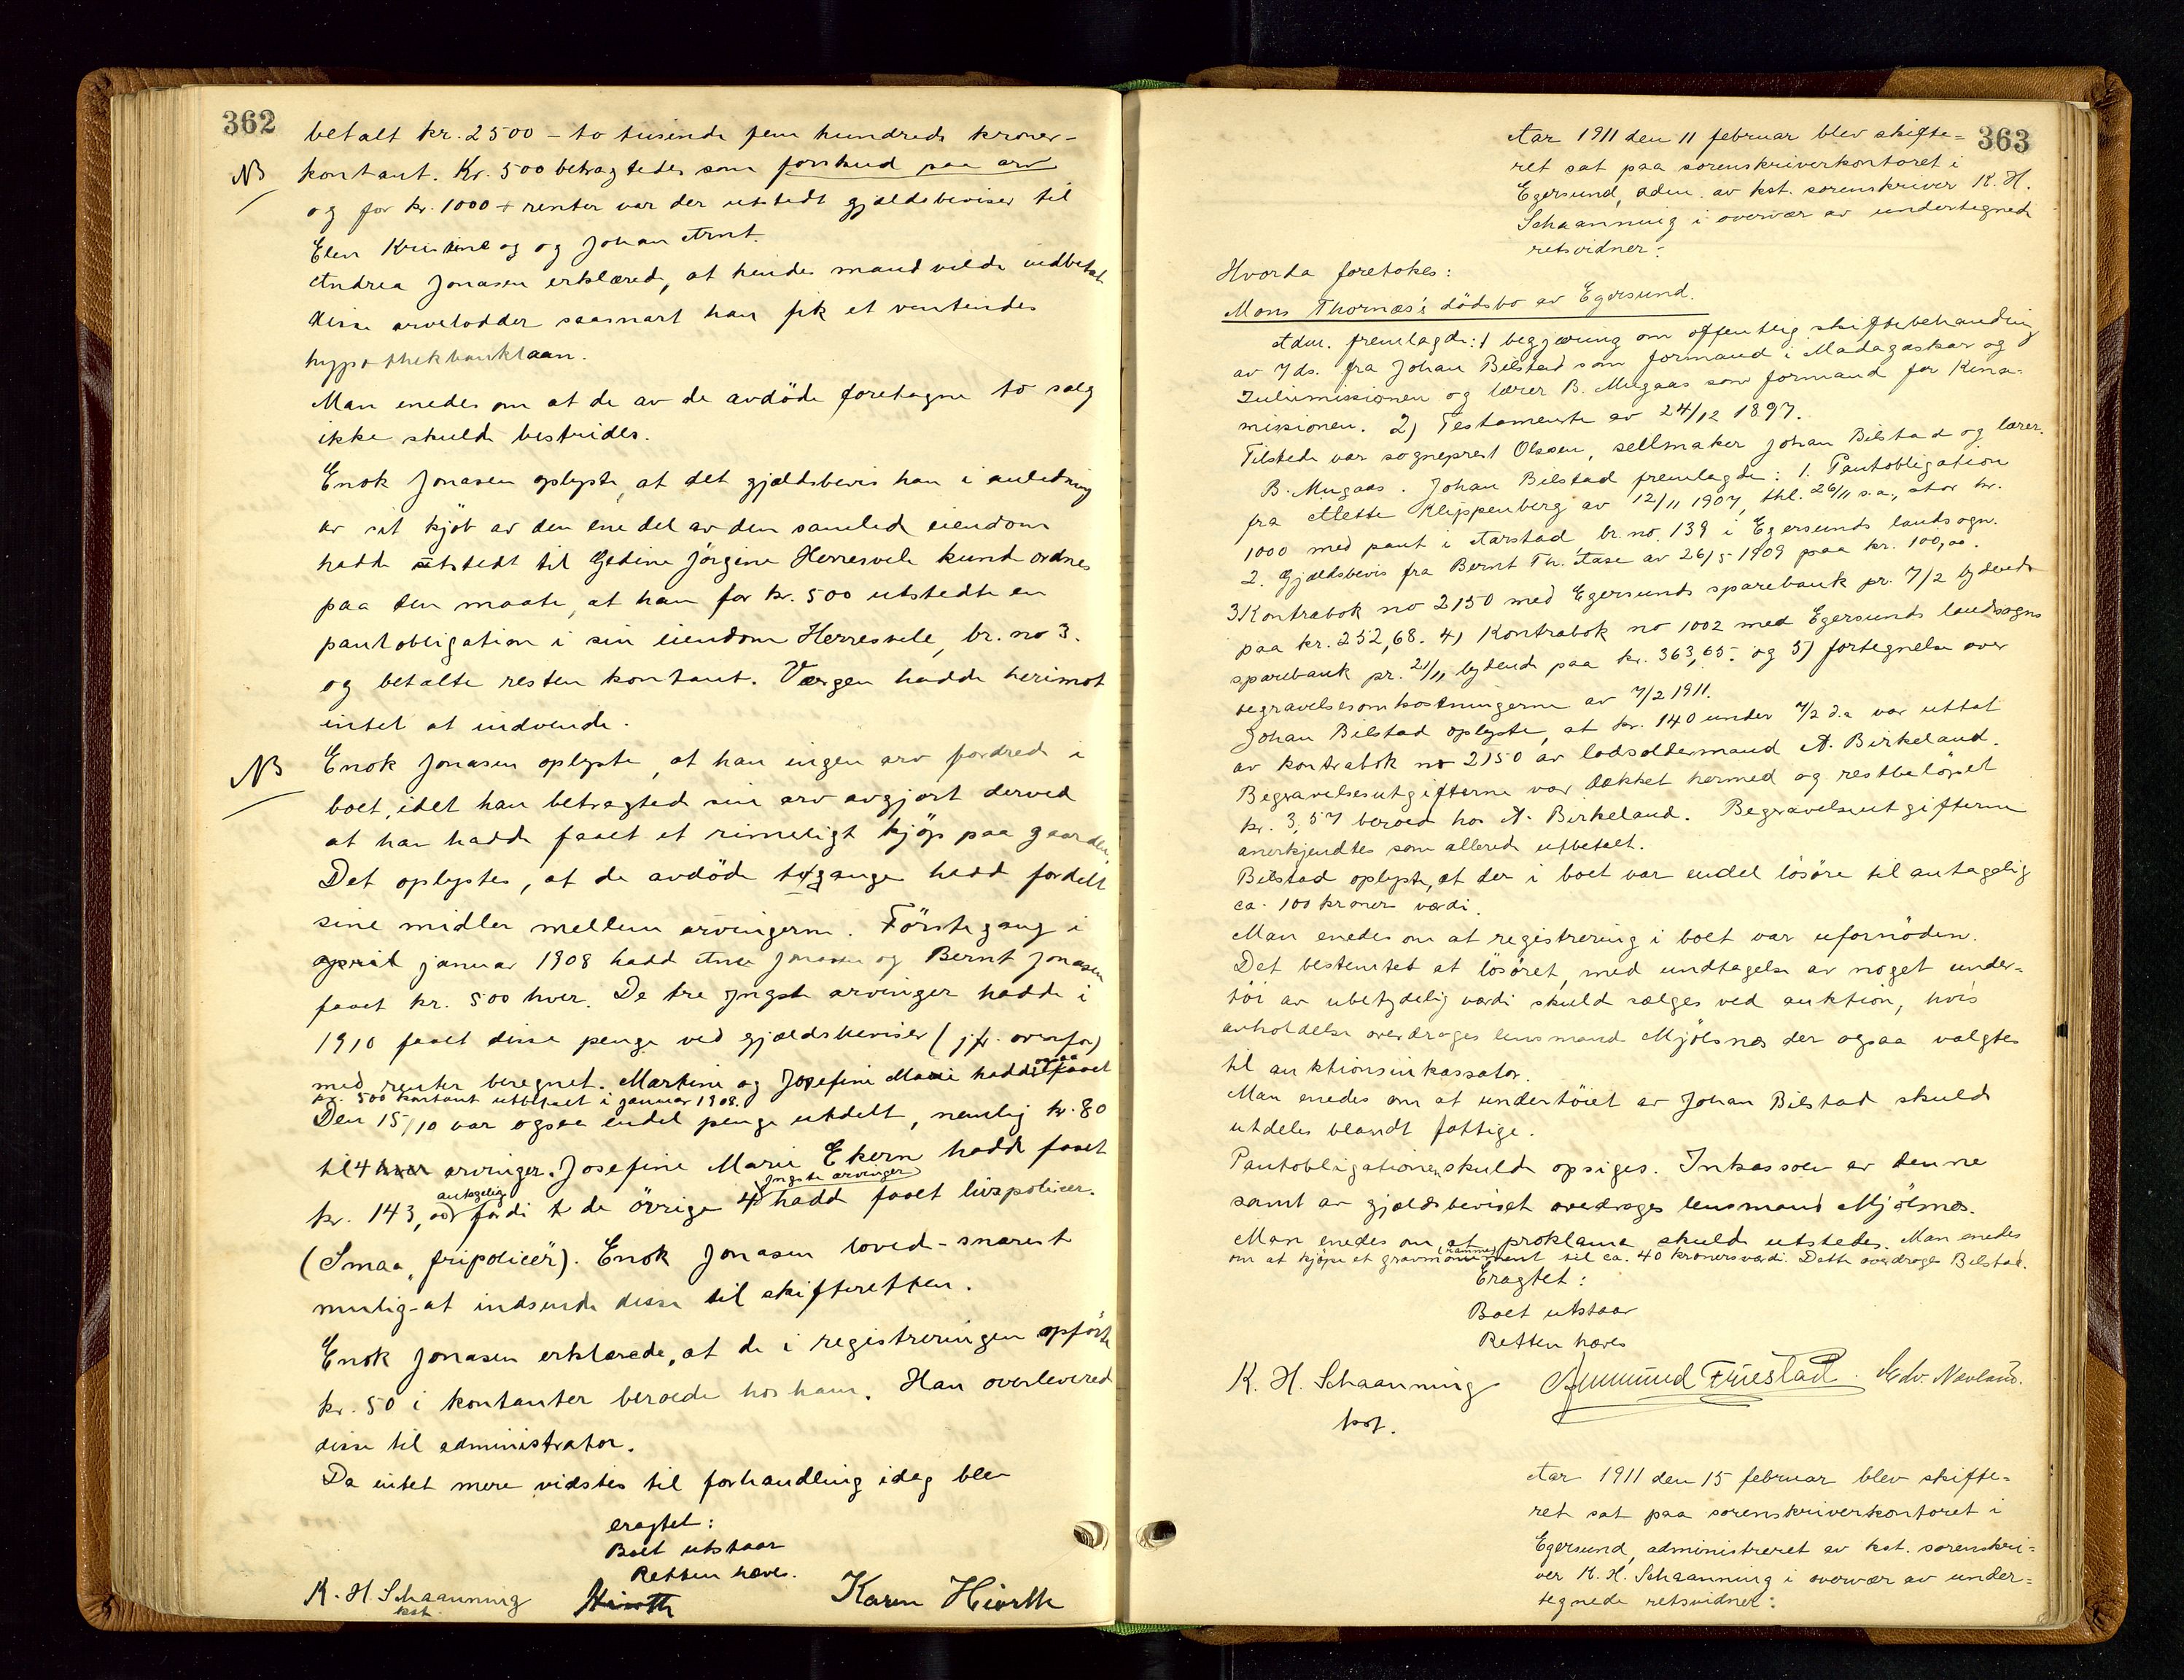 362
betalt kr. 2500 - to tusinde fem hundrede kroner -
NB kontant. Kr. 500 betragtedes som forskud paa arv
og for kr. 1000 + renter var der utstedt gjældsbeviser til
Elen Kristine og og Johan Arnt.
Andrea Jonasen erklærede, at hendes mand vilde indbetale
disse arvelodder saasnart han fik et ventendes
hypothekbanklaan.
Man enedes om at de av de avdöde foretagne to salg
ikke skulde bestrides.
Enok Jonasen oplyste, at det gjældsbevis han i anledning
av sit kjöb av den ene del av den samlede eiendom
hadde utstedt til Gedine Jörgine Herresvele kunde ordnes
paa den maate, at han for kr. 500 utstedte en
pantobligation i sin eiendom Herresvele, br. no 3.
og betalte resten kontant. Værgen hadde herimot
intet at indvende.
NB Enok Jonasen oplyste, at han ingen arv fordrede i
boet, idet han betragtede sin arv avgjort derved
at han hadde faaet et rimeligt kjöp paa gaarden.
Det oplystes, at de avdöde to gange hadde fordelt
sine midler mellem arvingerne. Förste gang i
april januar 1908 hadde Ane Jonasen og Bernt Jonasen
faaet kr. 500 hver. De tre yngste arvinger hadde i
1910 faaet disse penge ved gjældsbeviser (jfr. ovenfor)
med renter beregnet. Martine og Josefine Marie hadde ogsaa faaet
kr. 500 kontant utbetalt i januar 1908.
Den 15/10 var ogsaa endel penge utdelt, nemlig kr. 80
til 4 hver arvinger. Josefine Marie Ekern hadde faaet
kr. 143, antagelig fordi de övrige 4 yngste arvinger hadde faaet livspolicer.
(Smaa, fripolicer). Enok Jonasen lovede - snarest
mulig - at indsende disse til skifteretten.
Enok Jonasen erklærede, at de i registreringen opförte
kr. 50 i kontanter beroede hos ham. Han overleverede
disse til administrator.
Da intet mere vidstes til forhandling idag blev
eragtet:
Boet utstaar
Retten hæves.
K. H. Schaanning Hiorth Karen Hiorth
kst.
363
Aar 1911 den 11 februar blev skifte-
ret sat paa sorenskriverkontoret i
Egersund, adm. av kst. sorenskriver K. H.
Schaanning i overvær av undertegnede
retsvidner:
Hvorda foretokes:
Mons Thornæs's dödsbo av Egersund.
Adm. fremlagde: 1 begjæring om offentlig skiftebehandling
av 7 ds. fra Johan Bilstad som formand i Madagaskar og
Zulumissionen og lærer B. Mugaas som formand for Kina-
missionen. 2) Testamente av 24/12 1897.
Tilstede var sogneprest Olsen, sellmaker Johan Bilstad og lærer
B. Mugaas. Johan Bilstad fremlagde: 1. Pantobligation
fra Mette Klippenberg av 12/11 1907, thl. 26/11 s.a., stor kr.
1000 med pant i Aarstad br. no. 139 i Egersunds landsogn.
2. Gjældsbevis fra Bernt Th. Aase av 26/5 1909 paa kr. 100,00.
3 Kontrabok no 2150 med Egersunds sparebank pr. 7/2 lydende
paa kr. 252,68. 4) Kontrabok no 1002 med Egersunds landsogns
sparebank pr. 21/11 lydende paa kr. 363,65. og 5) fortegnelse over
begravelsesomkostningerne av 7/2 1911.
Johan Bilstad oplyste, at kr. 140 under 7/2 d.a var uttat
av kontrabok no 2150 av lodsoldermand A. Birkeland.
Begravelsesutgifterne var dækket hermed og restbelöpet
kr. 3,57 beroede hos A. Birkeland. Begravelsesutgifterne
anerkjendtes som allerede utbetalt.
Bilstad oplyste, at der i boet var endel lösöre til antagelig
ca. 100 kroners værdi.
Man enedes om at registrering i boet var ufornöden.
Det bestemtes at lösöret, med undtagelse av noget under-
töi av ubetydelig værdi skulde sælges ved auktion, hvis
avholdelse overdrages lensmand Mjölsnes der ogsaa valgtes
til auktionsinkassator.
Man enedes om at undertöiet av Johan Bilstad skulde
utdeles blandt fattige.
Pantobligationen skulde opsiges. Inkassoen av denne
samt av gjældsbeviset overdroges lensmand Mjölsnes.
Man enedes om at proklama skulde utstedes. Man enedes
om at kjöpe et gravmonument til ca. 40 kroners værdi. Dette overdroges Bilstad.
Eragtet:
Boet utstaar
Retten hæves
K. H. Schaanning Ammund Fuestad. Edv. Nevland.
kst.
Aar 1911 den 15 februar blev skifte-
ret sat paa sorenskriverkontoret i
Egersund, administreret av kst. sorenskri-
ver K. H. Schaanning i overvær av under-
tegnede retsvidner: